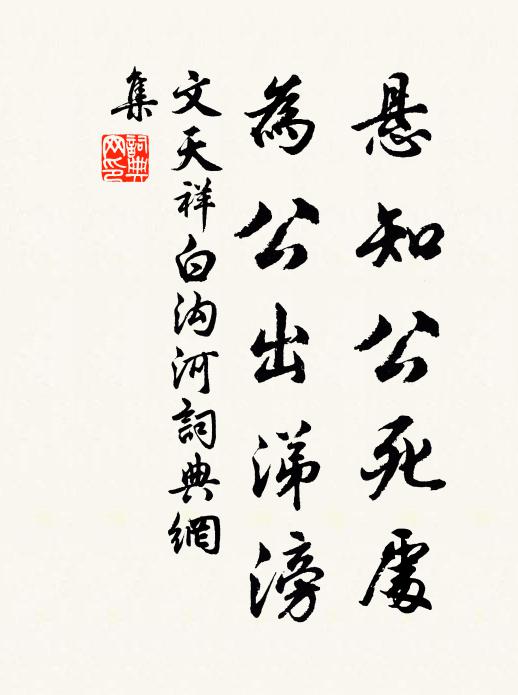 悬知公死處
為公出涕滂
文天祥白沟河詞典網
集
詞典
网印